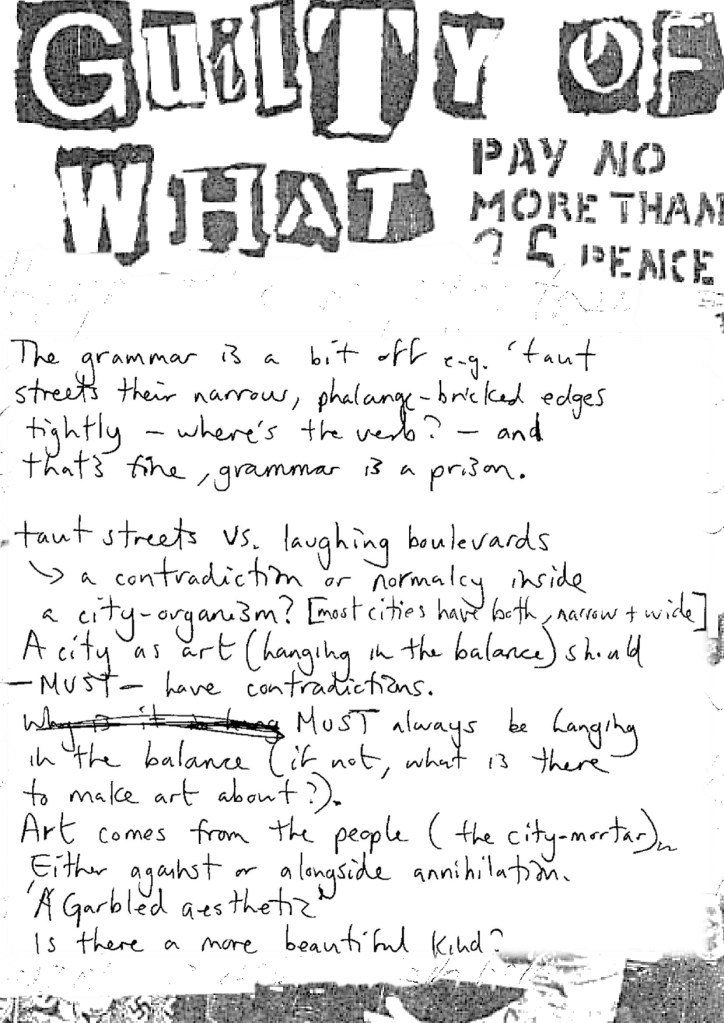 GUilTY OF
WHAT
PAY NO
MORE THAN
PENCE
The grammar is a bit off e.g. 'taut
streets their narrow, phalange-bricked edges
tightly – where's the verb? – and
that's fine, grammar is a prison.
taut streets vs. laughing boulevards
↳ a contradiction or normalcy inside
a city-organism? [most cities have both, narrow + wide]
A city as art (hanging in the balance) should
– MUST – have contradictions.
Why is it MUST always be hanging
in the balance (if not, what is there
to make art about?).
Art comes from the people (the city-mortar)
Either against or alongside annihilation.
"A Garbled aesthetic"
Is there a more beautiful kind?